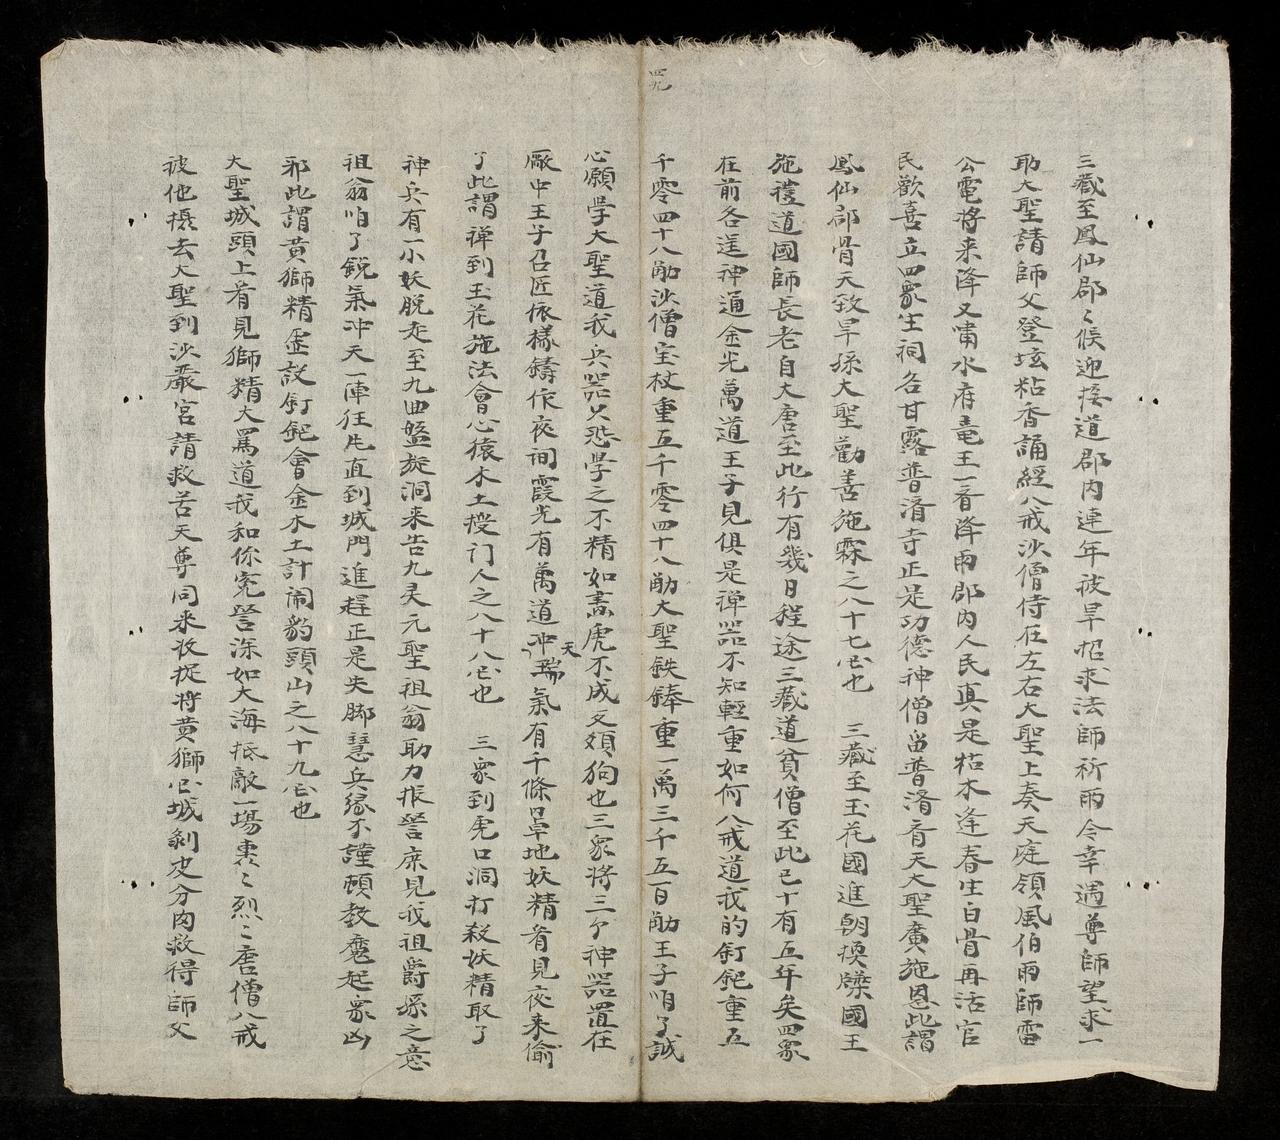 三藏至鳳仙郡〻侯迎接道郡内連年被旱招求法師祈雨今幸遇尊師望求一
助大聖請師父登坛粘香誦經八戒沙僧侍在左右大聖上奏天庭領風伯雨師雷
公電將来降又嘯水府竜王一斉降雨郡内人民真是枯木逢春生白骨再活官
民歡喜立四衆生祠名甘露普濟寺正是功德神僧留普濟斉天大聖廣施恩此謂
鳳仙郡骨天致旱孫大聖勸善施霖之八十七出也　三藏至玉花國進朝換牒國王
施禮道國師長老自大唐至此行有幾日程途三藏道貧僧至此已十有五年矣四衆
在前各逞神通金光萬道王子見俱是禅器不知輕重如何八戒道我的釘鈀重五
四九
千零四十八觔沙僧宝杖重五千零四十八觔大聖鉄鋒重一萬三千五百觔王子咱了誠
心願学大聖道我兵器只恐学之不精如畵虎不成又類狗也三衆將三个神器置在
廠中王子召匠依樣鑄作夜间霞光有萬道冲天瑞氣有千條罩地妖精看見夜来偷
了此謂禅到玉花施法會心猿木土授门人之八十八出也　三衆到虎口洞打殺妖精取了
神兵有一小妖脱走至九曲盤旋洞来告九灵元聖祖翁助力振誉庶見我祖爵孫之意
祖翁咱了銳氣冲天一陣狂瓦直到城門進趕正是失脚慧兵緣不謹頓教魔起衆凶
邪此謂黄獅精虛設釘鈀會金木土計闹豹頭山之八十九出也
大聖城頭上看見獅精大罵道我和你寃誉深如大海抵敵一塲轟〻烈〻唐僧八戒
被他摄去大聖到沙嚴宫請救苦天尊同来收捉將黄獅出城剝皮分肉救得師父